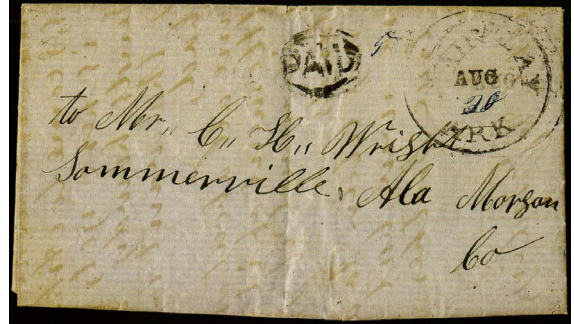 PAID 5
FAIRPLAY
AUG
20
ARK
to Mr,, C,, H,, Wright
Sommerville, Ala Morgan
Co